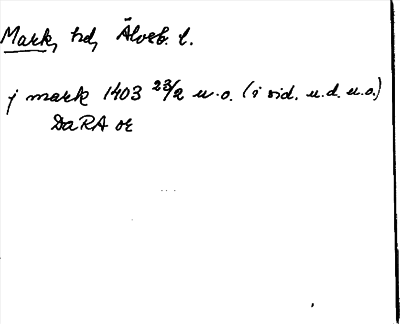 Mark, hd, Älvsb. l.
j mark 1403 23/2 u.o. (i vid. u.d. u.o.)
DaRA or